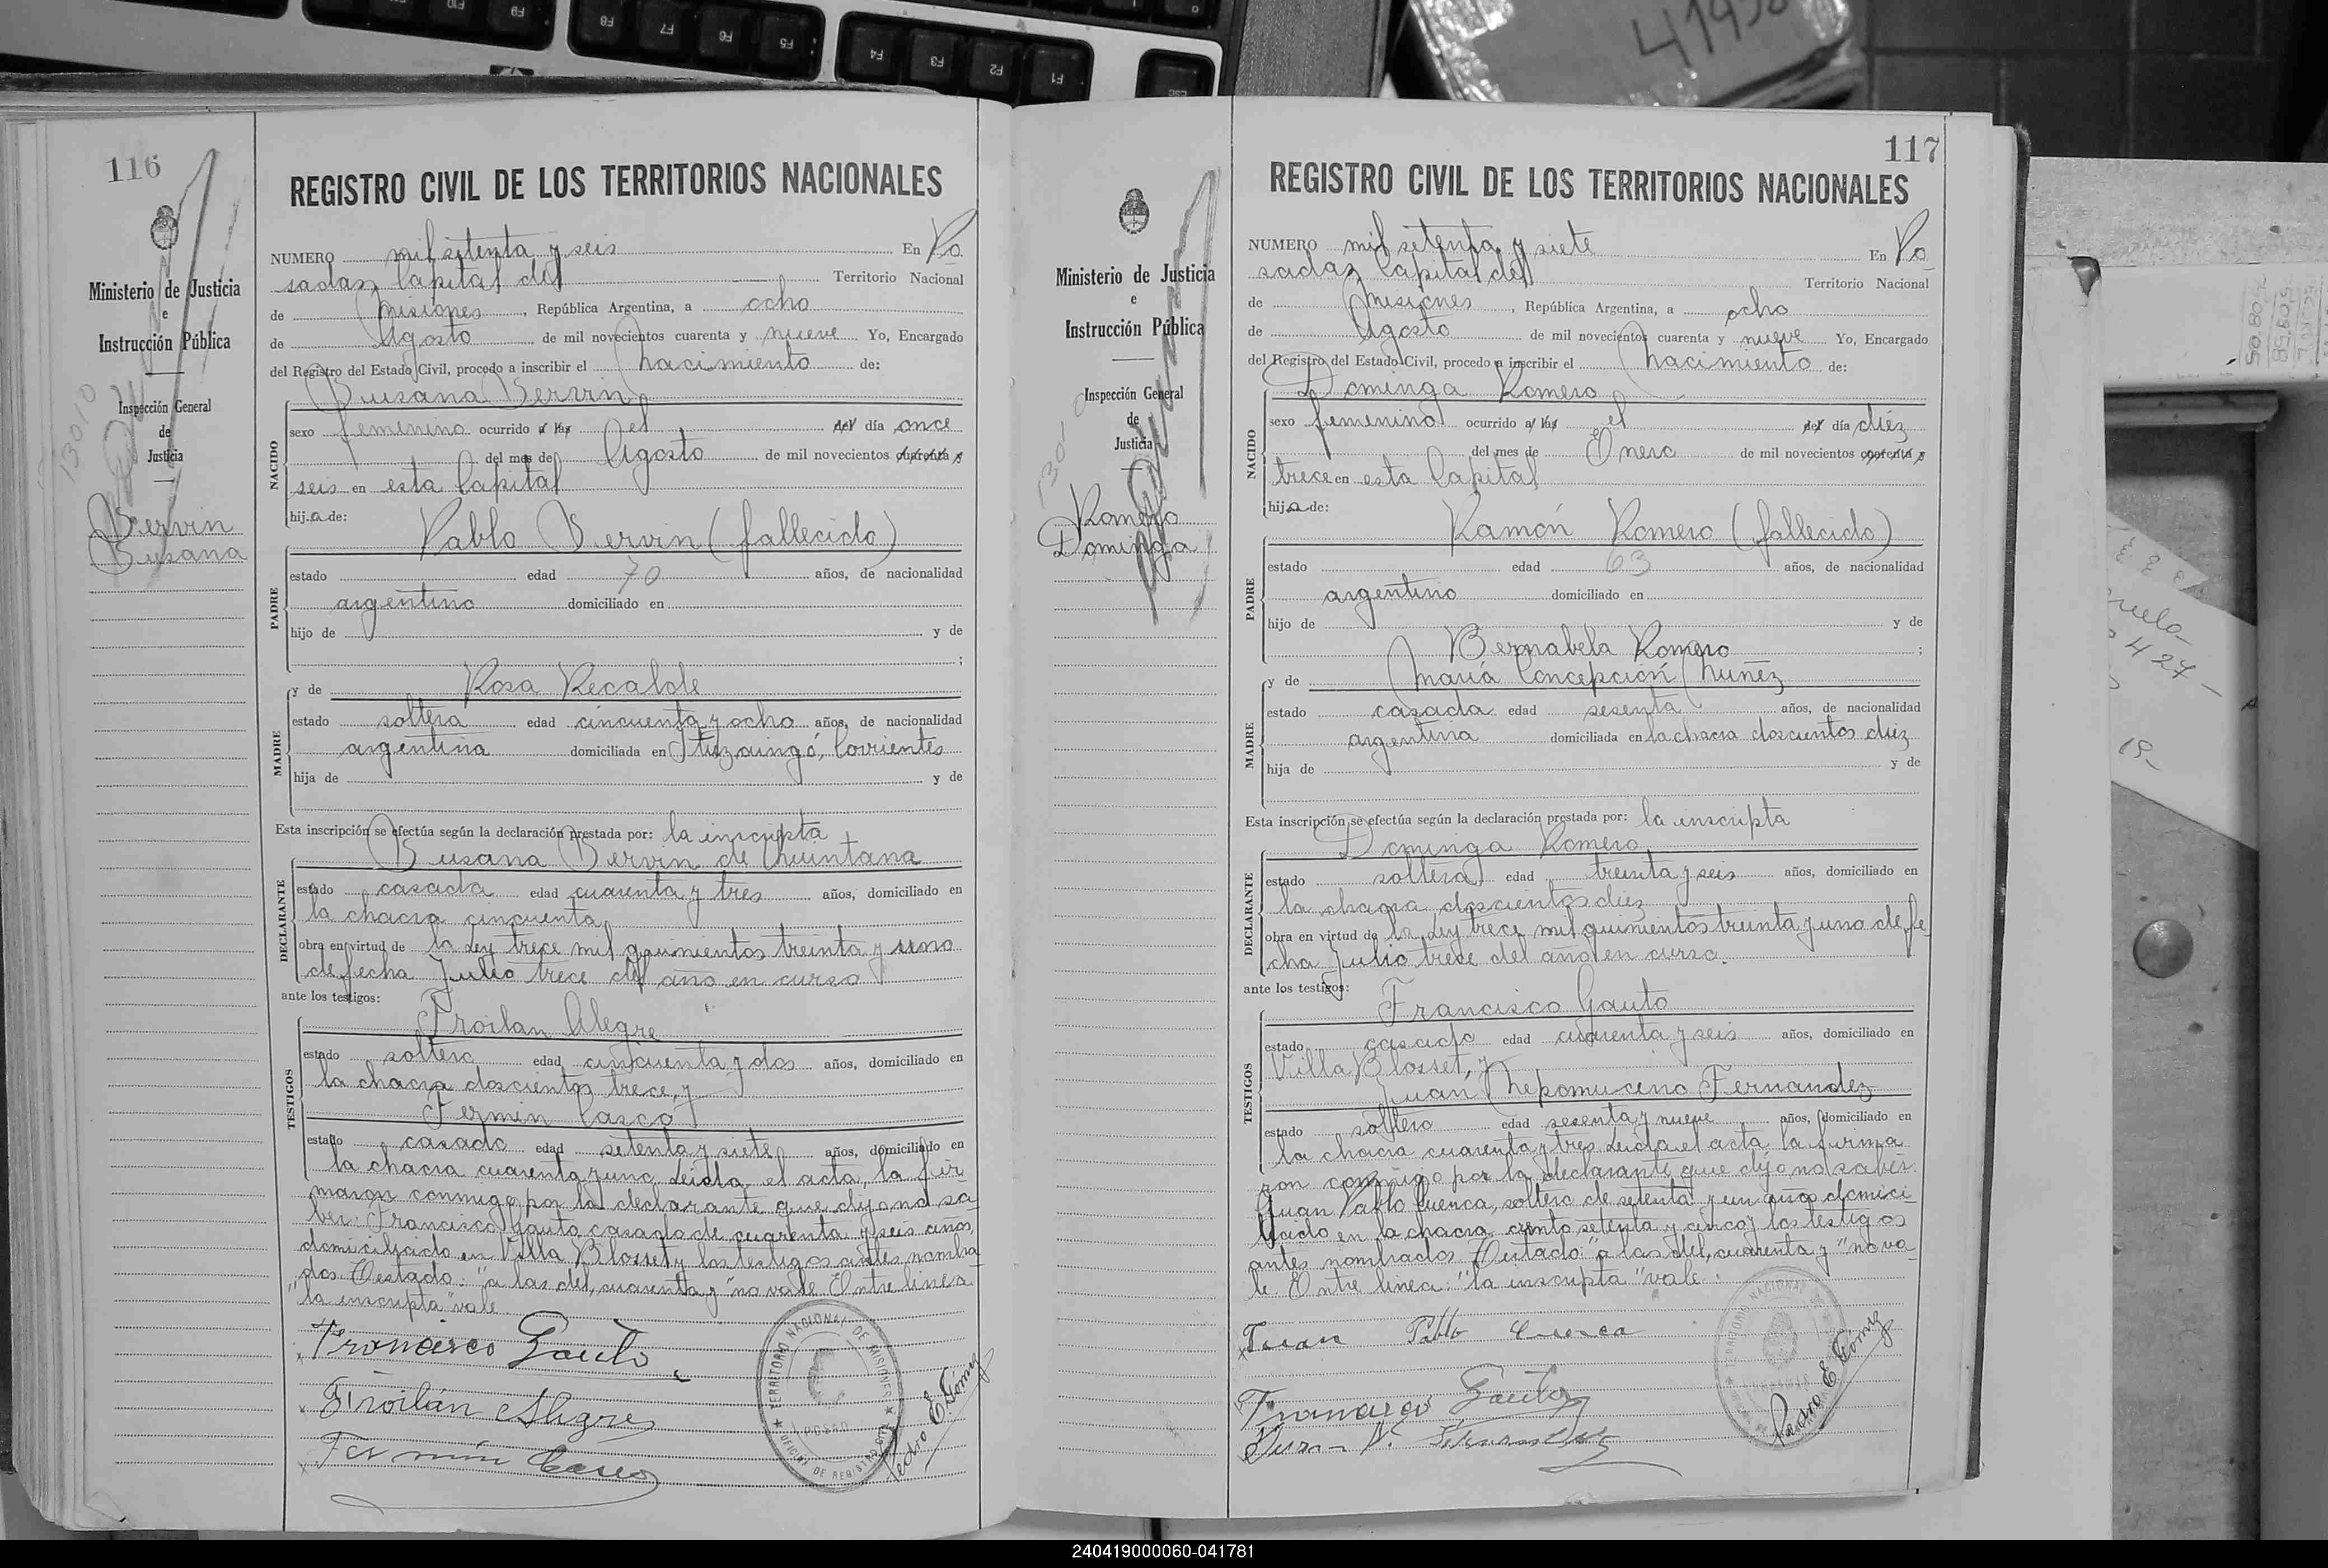 F10
F9
F8
F7
F6
F5
F4
F3
F2
F1
ESC
116
Ministerio de Justicia
e
Instrucción Pública
Inspección General
de
Justicia
13010
Bervin
Susana
REGISTRO CIVIL DE LOS TERRITORIOS NACIONALES
NUMERO mil setenta y seis En Po
sadas, Capital del Territorio Nacional
de Misiones, República Argentina, a ocho
de Agosto de mil novecientos cuarenta y nueve Yo, Encargado
del Registro del Estado Civil, procedo a inscribir el nacimiento de:
Susana Bervin
NACIDO
sexo femenino ocurrido a las el del día once
del mes de Agosto de mil novecientos cuarenta y
seis en esta Capital
hija de:
Pablo Bervin (fallecido)
PADRE
estado edad 70 años, de nacionalidad
argentino domiciliado en
hijo de y de
;
MADRE
y de Rosa Recalde
estado soltera edad cincuenta y ocho años, de nacionalidad
argentina domiciliada en Ituzaingó, Corrientes
hija de y de
Esta inscripción se efectúa según la declaración prestada por: la inscripta
Susana Bervin de Quintana
DECLARANTE
estado casada edad cuarenta y tres años, domiciliado en
la chacra cincuenta
obra en virtud de la Ley trece mil quinientos treinta y uno
de fecha Julio trece del año en curso
ante los testigos:
Froilan Alegre
TESTIGOS
estado soltero edad cincuenta y dos años, domiciliado en
la chacra doscientos trece, y
Fermin Casco
estado casado edad setenta y siete años, domiciliado en
la chacra cuarenta y uno, Leida el acta, la fir
maron conmigo por la declarante que dijo no sa-
ber: Francisco Gauto casado de cuarenta y seis años,
domiciliado en Villa Blosset y los testigos antes nombra
dos Testado: "a las del, cuarenta y" no vale Entre línea
"la inscripta" vale
Francisco Gauto
Froilán Alegre
Fermin Casco
Pedro E. Gómez
TERRITORIO NACIONAL DE MISIONES
117
Ministerio de Justicia
e
Instrucción Pública
Inspección General
de
Justicia
Romero
Dominga
REGISTRO CIVIL DE LOS TERRITORIOS NACIONALES
NUMERO mil setenta y siete En Po
sadas, Capital del Territorio Nacional
de Misiones, República Argentina, a ocho
de Agosto de mil novecientos cuarenta y nueve Yo, Encargado
del Registro del Estado Civil, procedo a inscribir el nacimiento de:
Dominga Romero
NACIDO
sexo femenino ocurrido a las el del día diéz
del mes de Enero de mil novecientos cuarenta y
trece en esta Capital
hija de:
Ramón Romero (fallecido)
PADRE
estado edad 63 años, de nacionalidad
argentino domiciliado en
hijo de y de
Bernabela Romero ;
MADRE
y de María Concepción Nuñez
estado casada edad sesenta años, de nacionalidad
argentina domiciliada en la chacra doscientos diez
hija de y de
Esta inscripción se efectúa según la declaración prestada por: la inscripta
Dominga Romero
DECLARANTE
estado soltera edad treinta y seis años, domiciliado en
la chacra doscientos diez
obra en virtud de la Ley trece mil quinientos treinta y uno de fe
cha Julio trece del año en curso.
ante los testigos:
Francisco Gauto
TESTIGOS
estado casado edad cuarenta y seis años, domiciliado en
Villa Blosset, y
Juan Nepomuceno Fernandez
estado soltero edad sesenta y nueve años, domiciliado en
la chacra cuarenta y tres Leida el acta, la firma
ron conmigo por la declarante que dijo no saber:
Juan Pablo Cuenca, soltero de setenta y un años domici
liado en la chacra ciento setenta y cinco y los testigos
antes nombrados Testado: "a las del, cuarenta y" no va-
le. Entre línea: "la inscripta" vale.
Juan Pablo Cuenca
Francisco Gauto
Juan N. Fernandez
Pedro E. Gómez
TERRITORIO NACIONAL
240419000060-041781